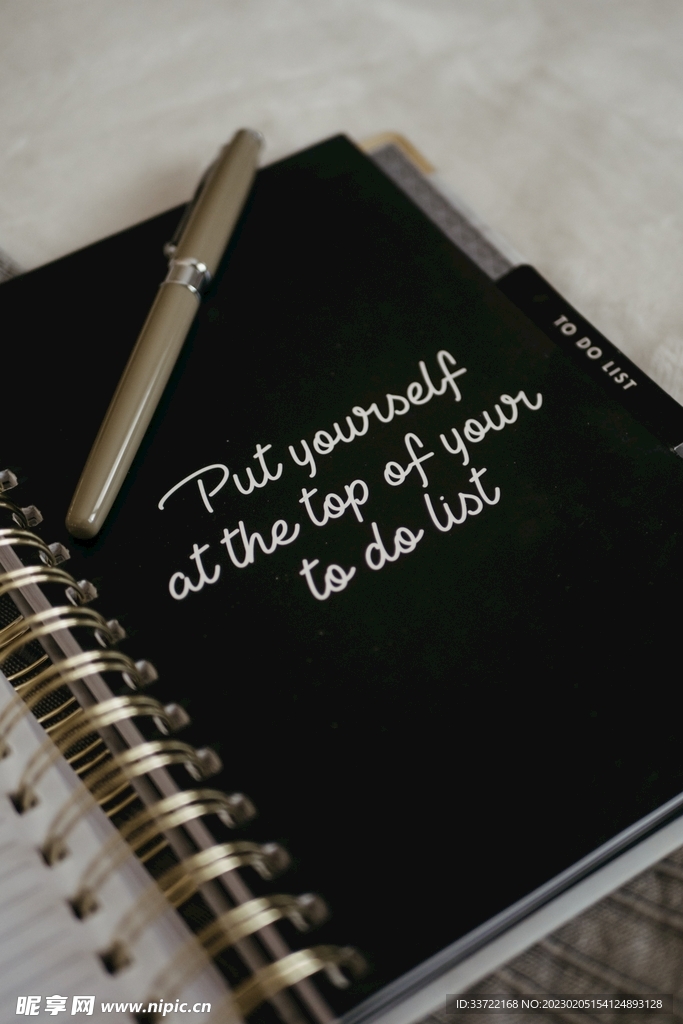 TO DO LIST
Put yourself
at the top of your
to do list
昵享网 www.nipic.cn
ID:33722168 NO:20230205154124893128